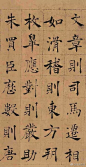 文章則司馬遷相
如滑稽則東方朔
枚皋應對則嚴助
朱買臣曆數則唐